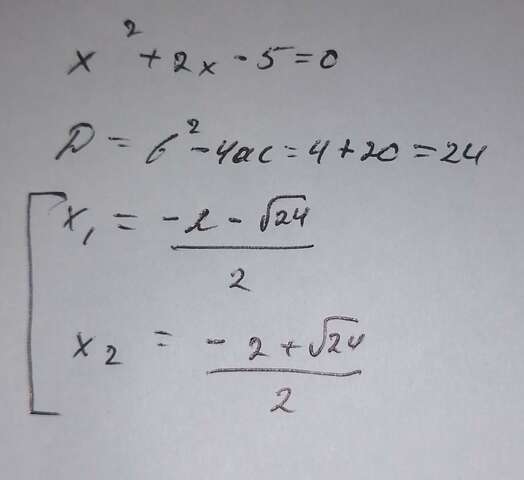 x² + 2x - 5 = 0
D = b² - 4ac = 4 + 20 = 24
x₁ = (-2 - √24)/2
x₂ = (-2 + √24)/2